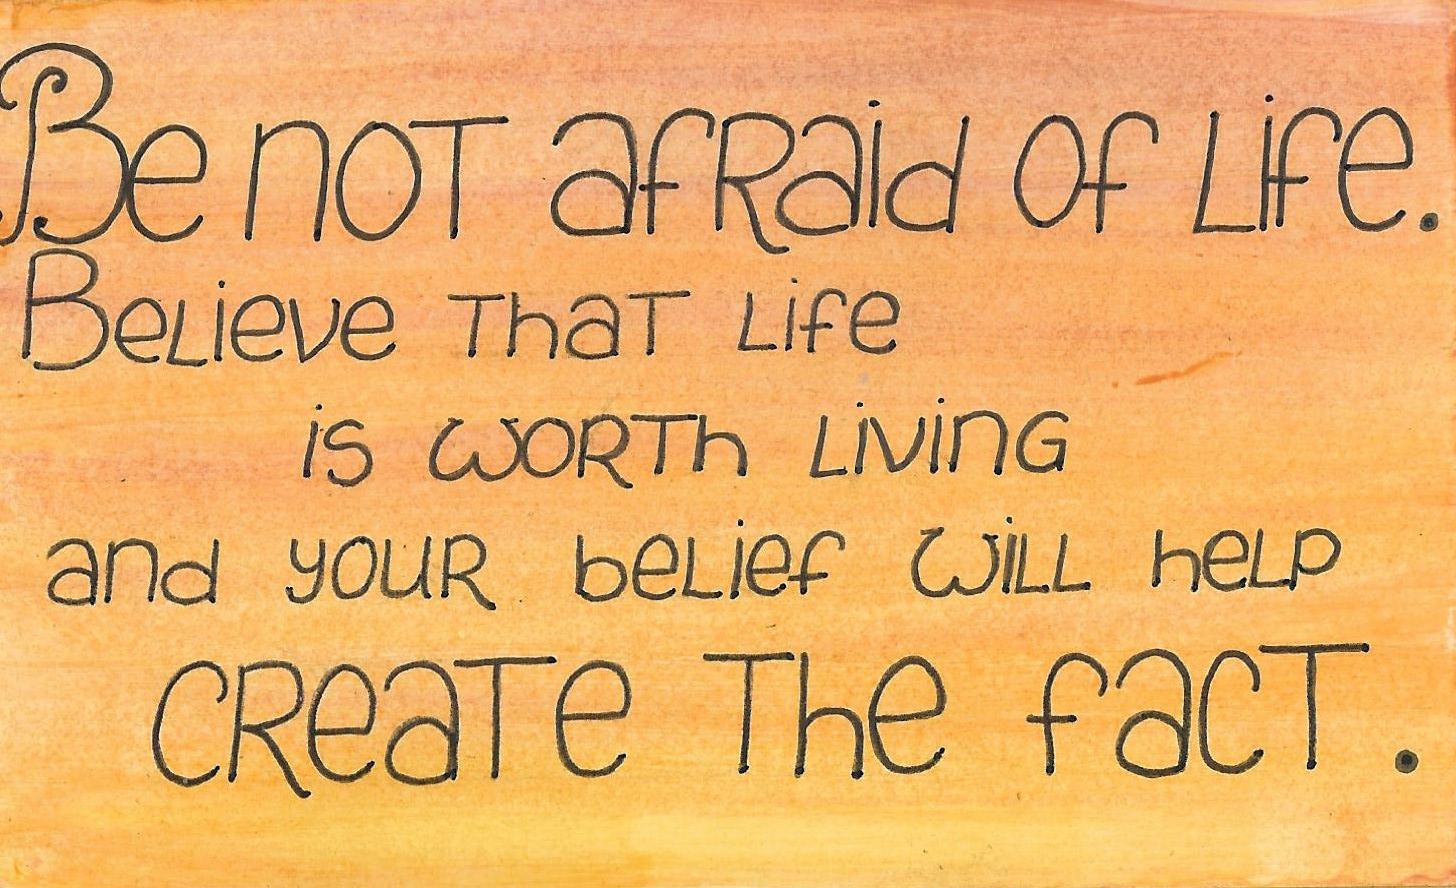 Be not afraid of Life.
Believe that Life
is worth Living
and your belief will help
create the fact.